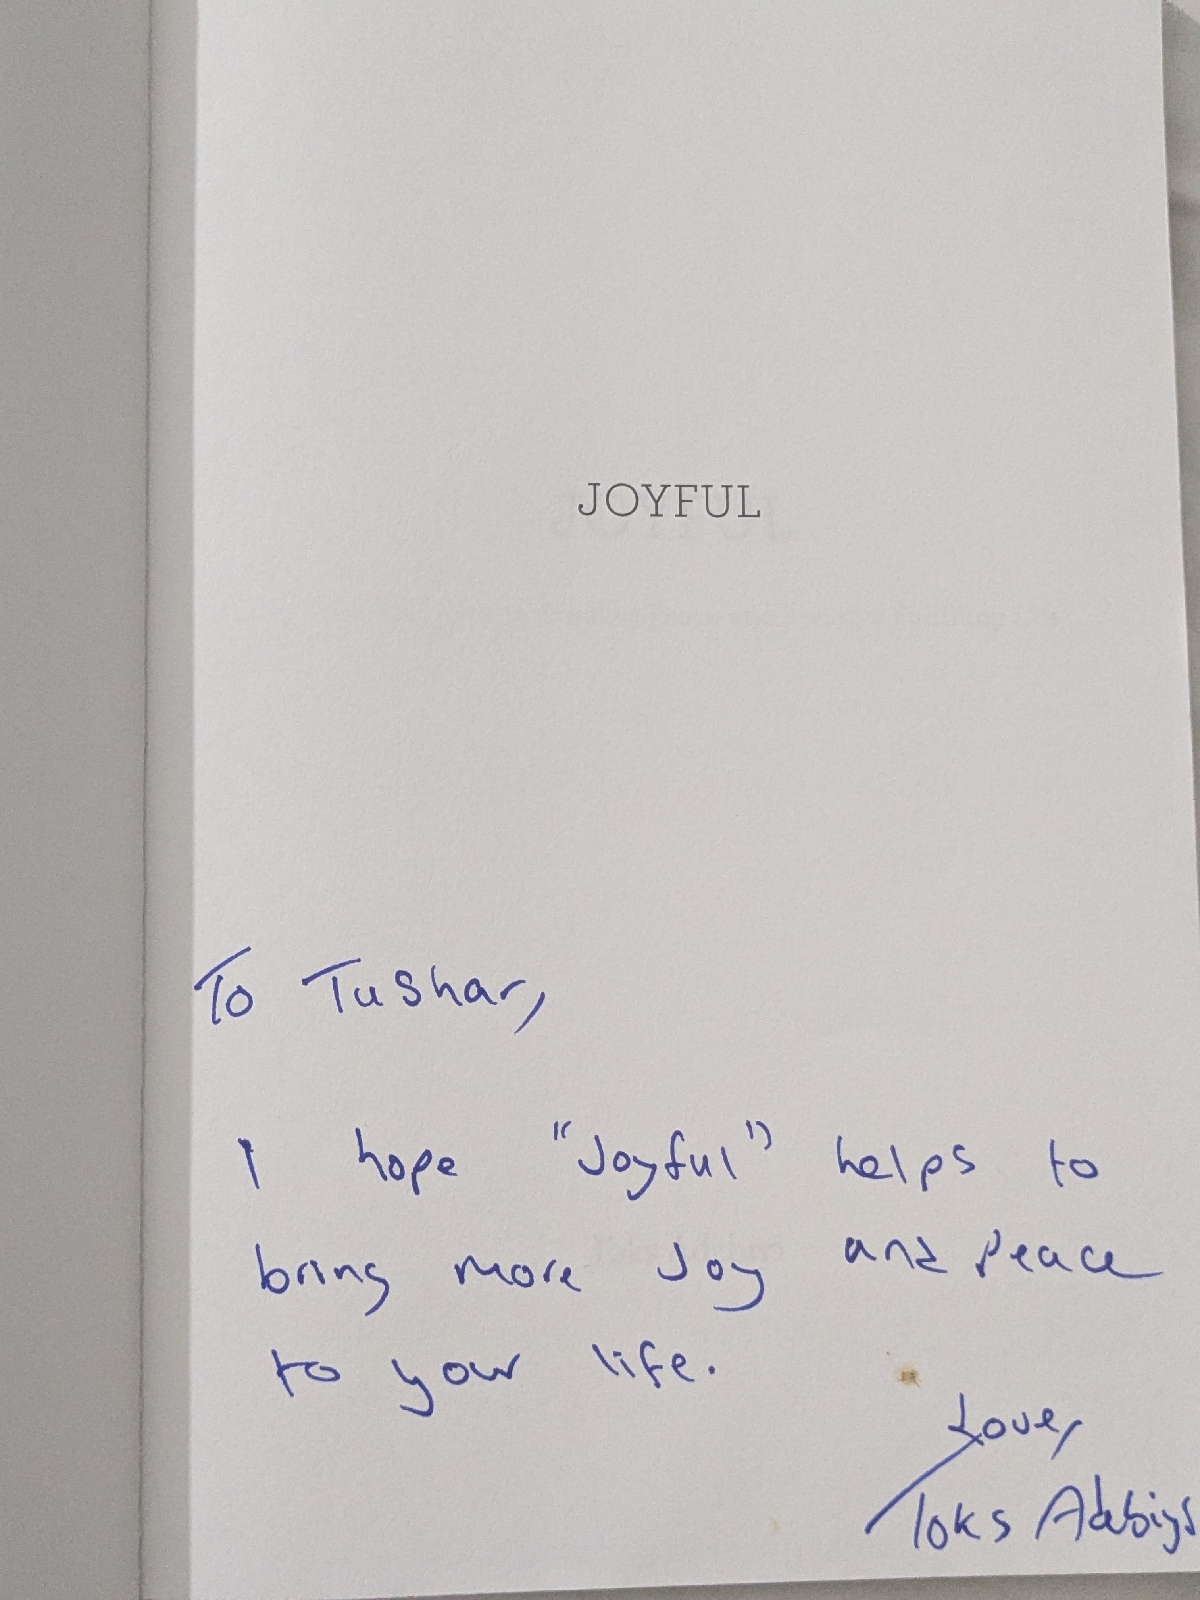 JOYFUL
To Tushar,
I hope "Joyful" helps to
bring more Joy and Peace
to your life.
Love,
Toks